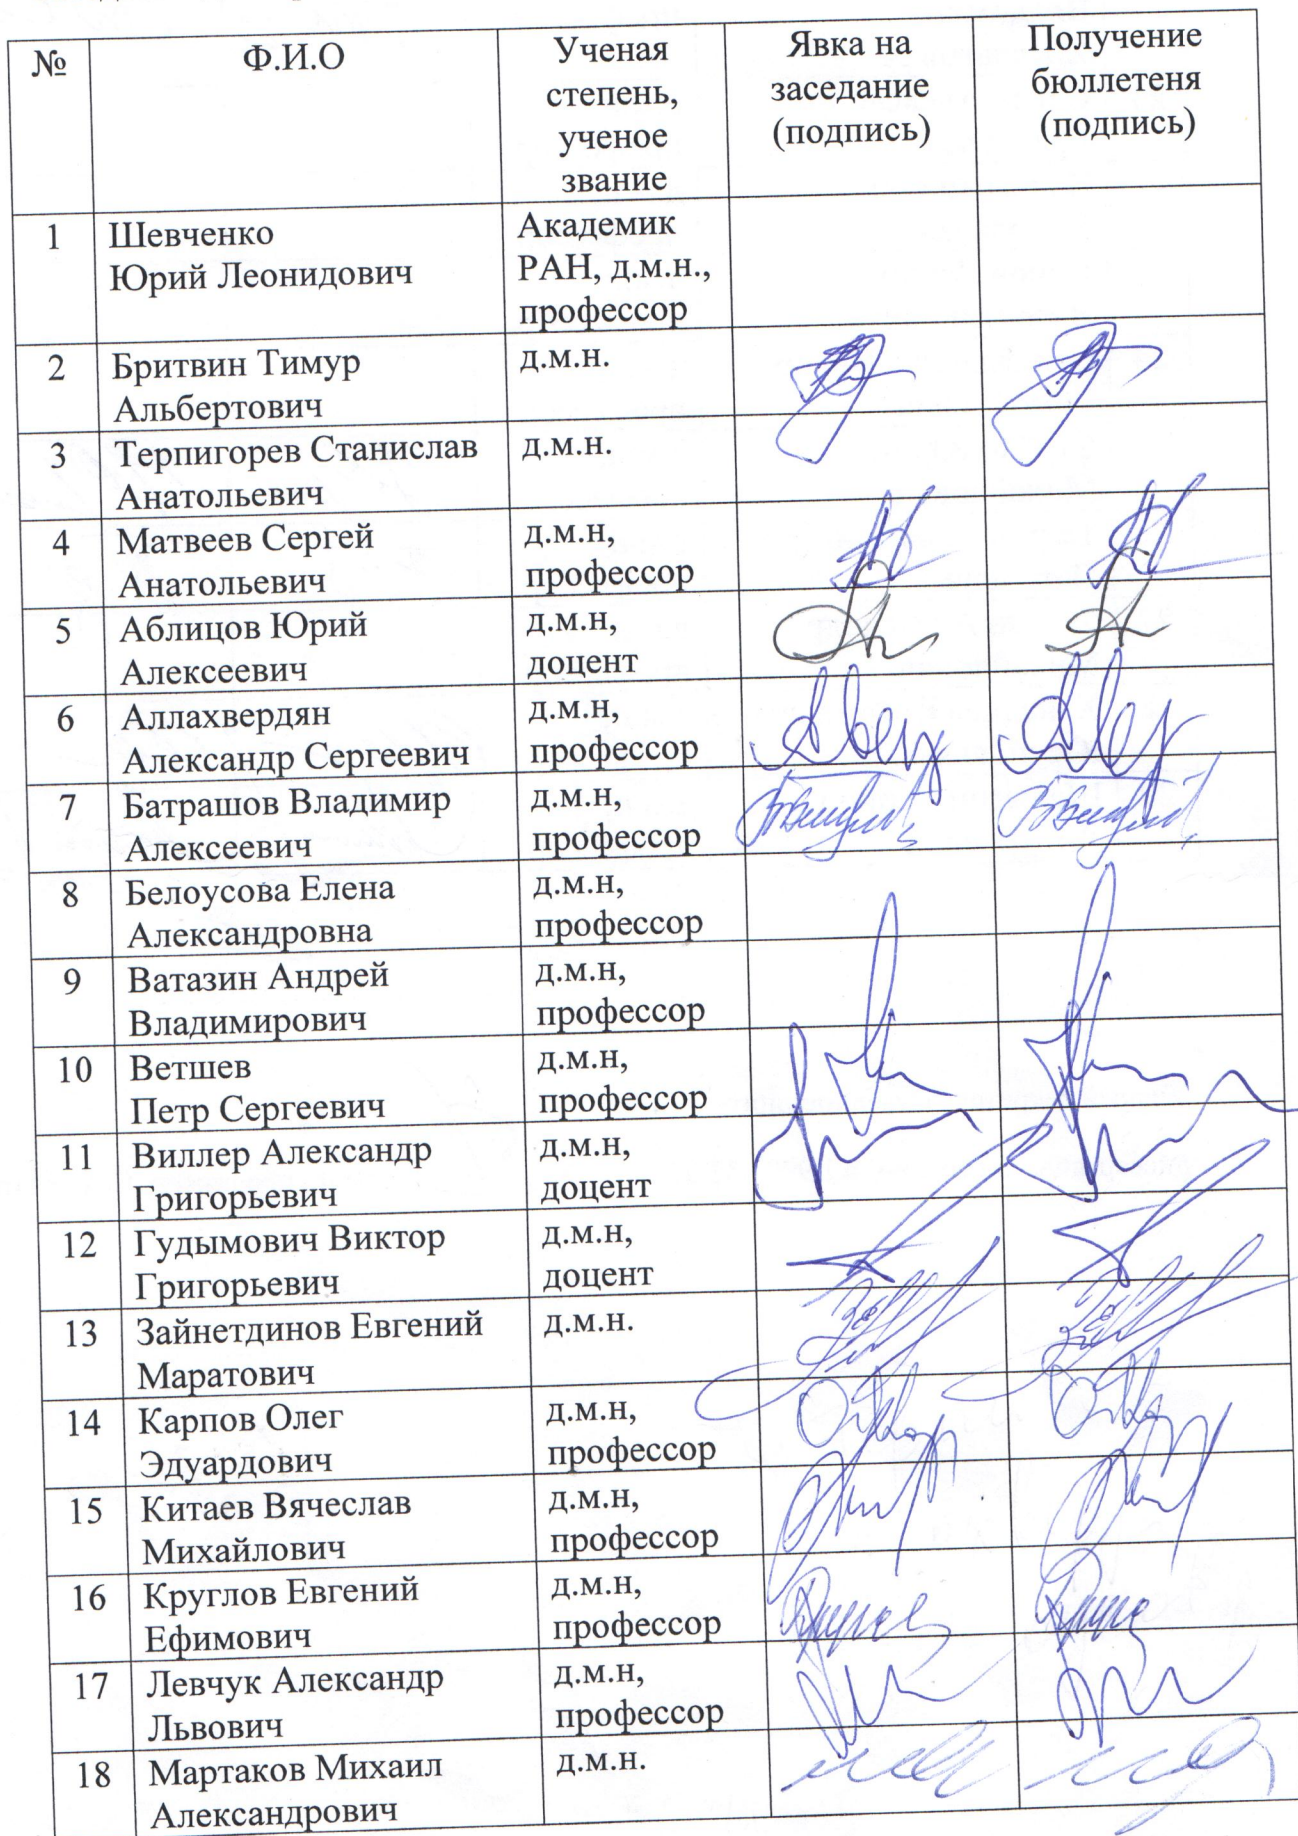 №
Ф.И.О
Ученая
степень,
ученое
звание
Явка на
заседание
(подпись)
Получение
бюллетеня
(подпись)
1
Шевченко
Юрий Леонидович
Академик
РАН, д.м.н.,
профессор
2
Бритвин Тимур
Альбертович
д.м.н.
3
Терпигорев Станислав
Анатольевич
д.м.н.
4
Матвеев Сергей
Анатольевич
д.м.н,
профессор
5
Аблицов Юрий
Алексеевич
д.м.н,
доцент
6
Аллахвердян
Александр Сергеевич
д.м.н,
профессор
7
Батрашов Владимир
Алексеевич
д.м.н,
профессор
8
Белоусова Елена
Александровна
д.м.н,
профессор
9
Ватазин Андрей
Владимирович
д.м.н,
профессор
10
Ветшев
Петр Сергеевич
д.м.н,
профессор
11
Виллер Александр
Григорьевич
д.м.н,
доцент
12
Гудымович Виктор
Григорьевич
д.м.н,
доцент
13
Зайнетдинов Евгений
Маратович
д.м.н.
14
Карпов Олег
Эдуардович
д.м.н,
профессор
15
Китаев Вячеслав
Михайлович
д.м.н,
профессор
16
Круглов Евгений
Ефимович
д.м.н,
профессор
17
Левчук Александр
Львович
д.м.н,
профессор
18
Мартаков Михаил
Александрович
д.м.н.